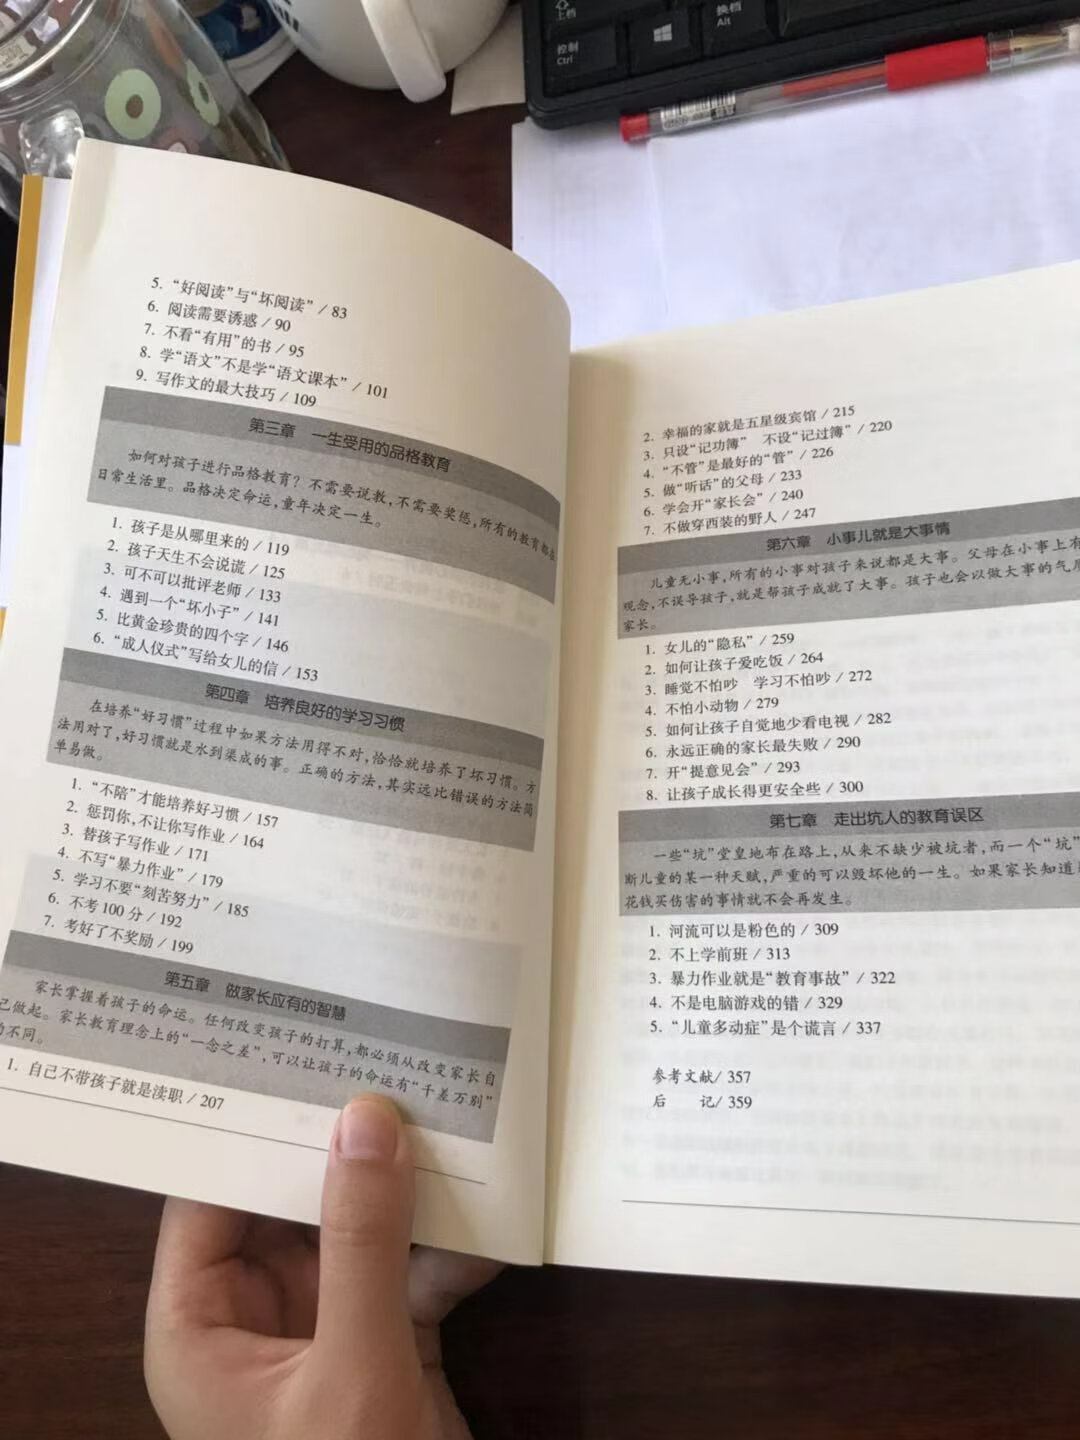 上档
控制
Ctrl
换档
Alt
5. “好阅读”与“坏阅读” / 83
6. 阅读需要诱惑 / 90
7. 不看“有用”的书 / 95
8. 学“语文”不是学“语文课本” / 101
9. 写作文的最大技巧 / 109
第三章 一生受用的品格教育
如何对孩子进行品格教育？不需要说教，不需要奖惩，所有的教育都在
日常生活里。品格决定命运，童年决定一生。
1. 孩子是从哪里来的 / 119
2. 孩子天生不会说谎 / 125
3. 可不可以批评老师 / 133
4. 遇到一个“坏小子” / 141
5. 比黄金珍贵的四个字 / 146
6. “成人仪式”写给女儿的信 / 153
第四章 培养良好的学习习惯
在培养“好习惯”过程中如果方法用得不对，恰恰就培养了坏习惯。方
法用对了，好习惯就是水到渠成的事。正确的方法，其实远比错误的方法简
单易做。
1. “不陪”才能培养好习惯 / 157
2. 惩罚你，不让你写作业 / 164
3. 替孩子写作业 / 171
4. 不写“暴力作业” / 179
5. 学习不要“刻苦努力” / 185
6. 不考100分 / 192
7. 考好了不奖励 / 199
第五章 做家长应有的智慧
家长掌握着孩子的命运。任何改变孩子的打算，都必须从改变家长自
己做起。家长教育理念上的“一念之差”，可以让孩子的命运有“千差万别”
的不同。
1. 自己不带孩子就是渎职 / 207
2. 幸福的家就是五星级宾馆 / 215
3. 只设“记功簿” 不设“记过簿” / 220
4. “不管”是最好的“管” / 226
5. 做“听话”的父母 / 233
6. 学会开“家长会” / 240
7. 不做穿西装的野人 / 247
第六章 小事儿就是大事情
儿童无小事，所有的小事对孩子来说都是大事。父母在小事上有
观念，不误导孩子，就是帮孩子成就了大事。孩子也会以做大事的气质
家长。
1. 女儿的“隐私” / 259
2. 如何让孩子爱吃饭 / 264
3. 睡觉不怕吵 学习不怕吵 / 272
4. 不怕小动物 / 279
5. 如何让孩子自觉地少看电视 / 282
6. 永远正确的家长最失败 / 290
7. 开“提意见会” / 293
8. 让孩子成长得更安全些 / 300
第七章 走出坑人的教育误区
一些“坑”堂皇地布在路上，从来不缺少被坑者，而一个“坑”
断儿童的某一种天赋，严重的可以毁坏他的一生。如果家长知道
花钱买伤害的事情就不会再发生。
1. 河流可以是粉色的 / 309
2. 不上学前班 / 313
3. 暴力作业就是“教育事故” / 322
4. 不是电脑游戏的错 / 329
5. “儿童多动症”是个谎言 / 337
参考文献 / 357
后 记 / 359